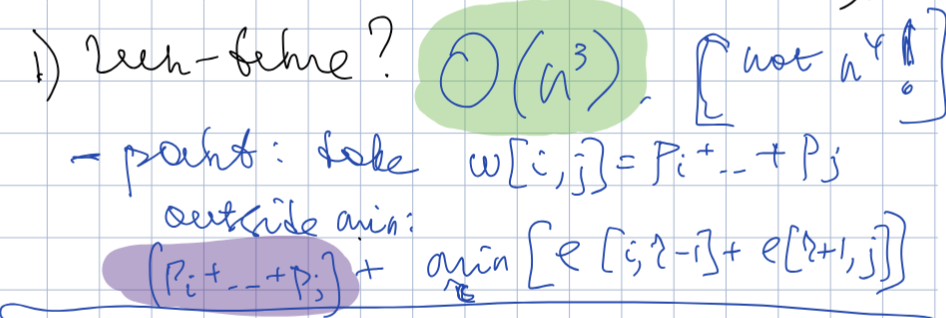 1) Run-time? O(n³). [not n⁴!]
- point: take w[i,j] = Pi + -- + Pj
outside min:
(Pi + -- + Pj) + min [e[i,r-1] + e[r+1,j]]
r